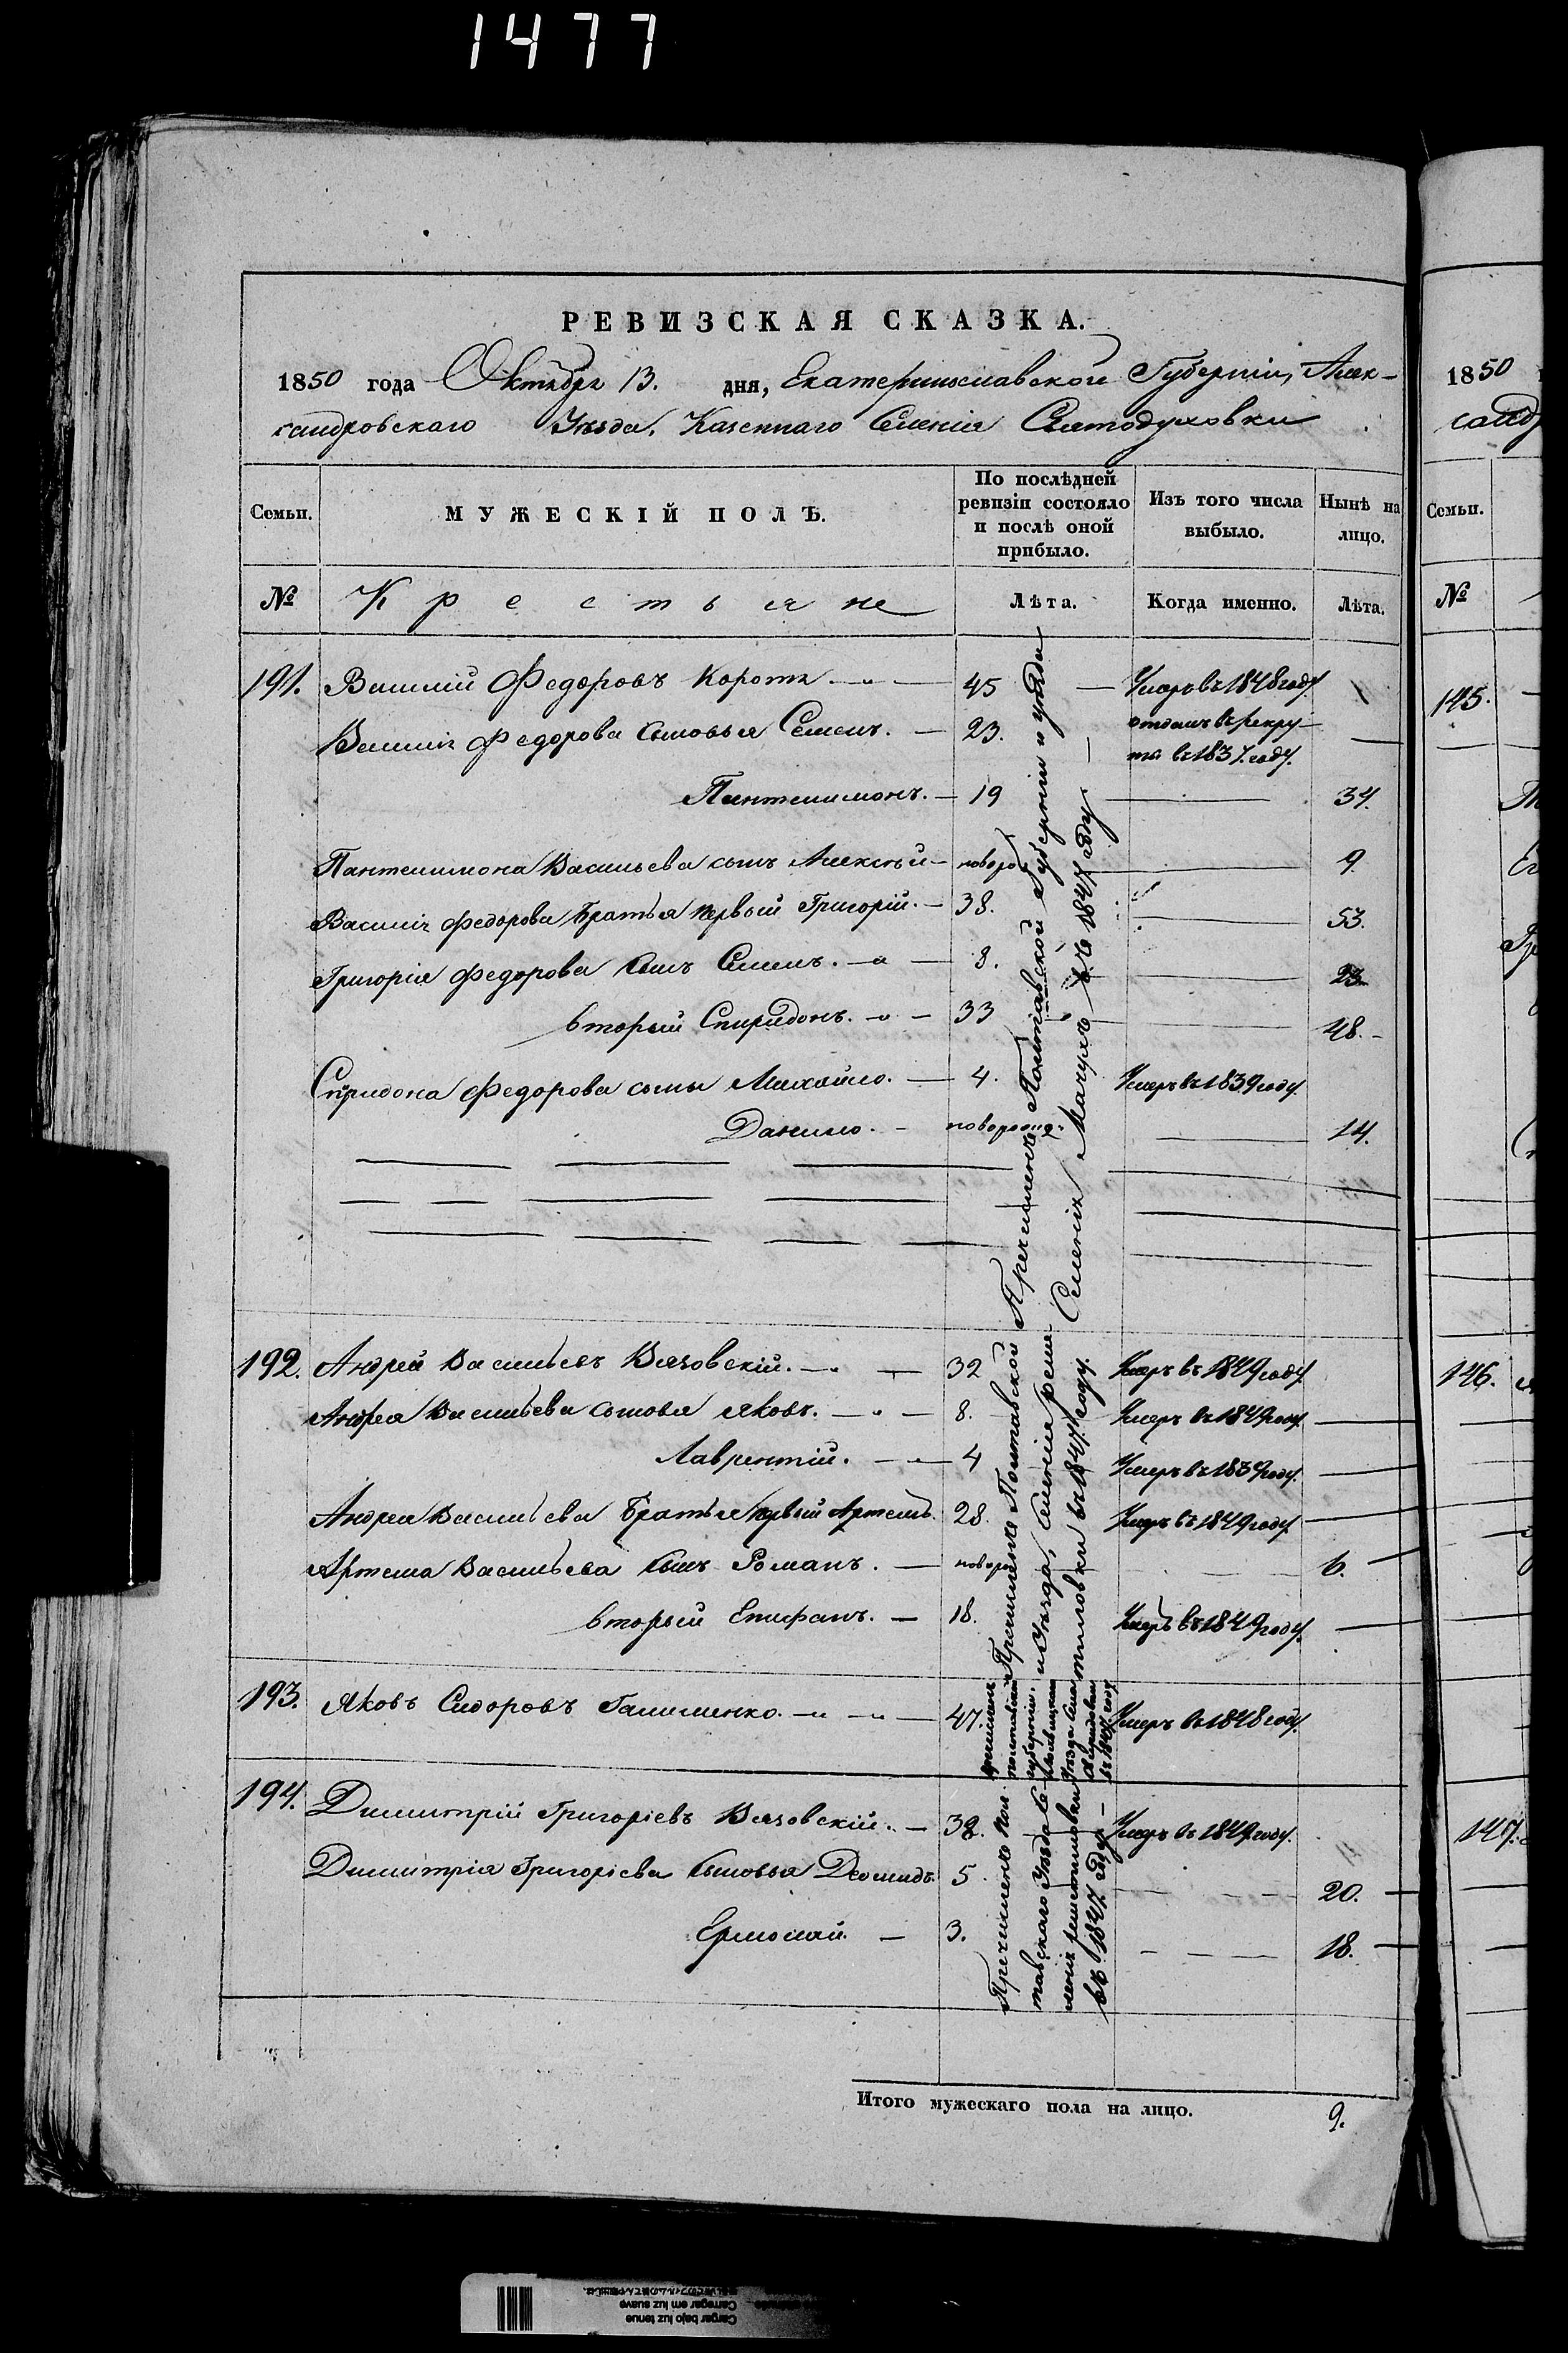 1477
РЕВИЗСКАЯ СКАЗКА.
1850 года Октября 13. дня, Екатеринославской Губерніи, Алек-
сандровскаго Уѣзда, Казеннаго Селенія Святодуховки
Семьи.
МУЖЕСКІЙ ПОЛЪ.
По послѣдней ревизіи состояло и послѣ оной прибыло.
Изъ того числа выбыло.
Нынѣ на лицо.
№ Крестьяне Лѣта. Когда именно. Лѣта.
191. Василій Федоровъ Коротя 45 Умеръ въ 1848 году.
Василія Федорова сыновья Семенъ. 23. отданъ въ рекру-
ты въ 1837. году.
Пантелимонъ. 19 34.
Пантелимона Васильева сынъ Алексѣй новорож 9.
Василія Федорова братья первый Григорій. 38. 53.
Григорія Федорова сынъ Семенъ. 8. 23.
вторый Спиридонъ. 33 48.
Спиридона Федорова сыны Михайло. 4. Умеръ въ 1839 году.
Данило. новорожд. 14.
Пречисленъ Полтавской Губерніи и уѣзда
Селенія Мачухъ въ 1847 году
192. Андрей Васильевъ Вязовскій. 32 Умеръ въ 1849 году.
Андрея Васильева сыновья Яковъ. 8. Умеръ въ 1849 году.
Лаврентій. 4 Умеръ въ 1839 году.
Андрея Васильева братья первый Артемъ. 28. Умеръ въ 1849 году
Артема Васильева сынъ Романъ. новорож 6.
вторый Епифанъ. 18. Умеръ въ 1849 году.
Пречисленъ Полтавской
и Уѣзда, Селенія реше-
тиловки въ 1847 году.
193. Яковъ Сидоровъ Галишенко. 47. Умеръ въ 1848 году.
полтавской
губерніи.
Уѣзда
въ 1847. году
194. Димитрій Григоріевъ Вязовскій. 32. Умеръ въ 1849 году.
Димитрія Григоріева сыновья Деомидъ. 5 20.
Ермолай. 3. 18.
Пречисленъ Пол
тавскаго Уѣзда Се-
ленія решетиловки
въ 1847 году
Итого мужескаго пола на лицо. 9.
1850
санд
Семьи.
№
145.
146.
147.
Cargar bajo luz tenue
Carregar em luz suave